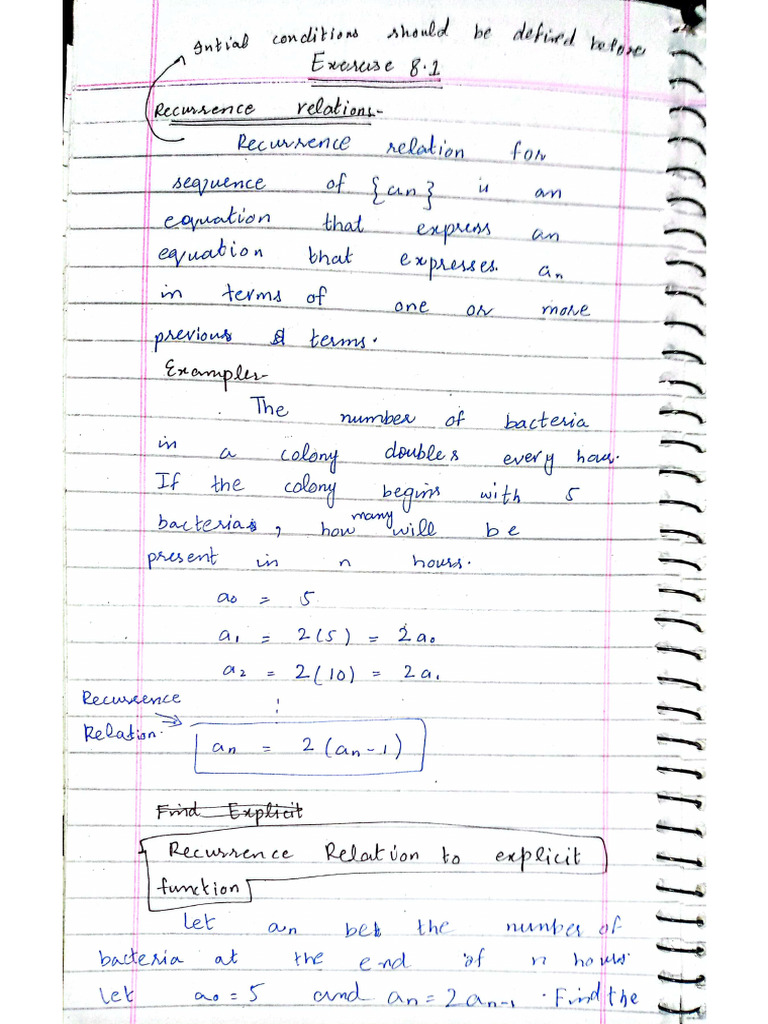 Intial conditions should be defined before
Exercise 8.1
Recurrence relations-
Recurrence relation for
sequence of {an} is an
equation that express an
equation that expresses an
in terms of one or more
previous terms.
Examples-
The number of bacteria
in a colony doubles every hour.
If the colony begins with 5
bacterias, how many will be
present in n hours.
a₀ = 5
a₁ = 2(5) = 2a₀
a₂ = 2(10) = 2a₁
⋮
Recurrence
Relation.
aₙ = 2(aₙ₋₁)
Find Explicit
Recurrence Relation to explicit
function
Let aₙ be the number of
bacteria at the end of n hours.
let a₀ = 5 and aₙ = 2aₙ₋₁ . Find the